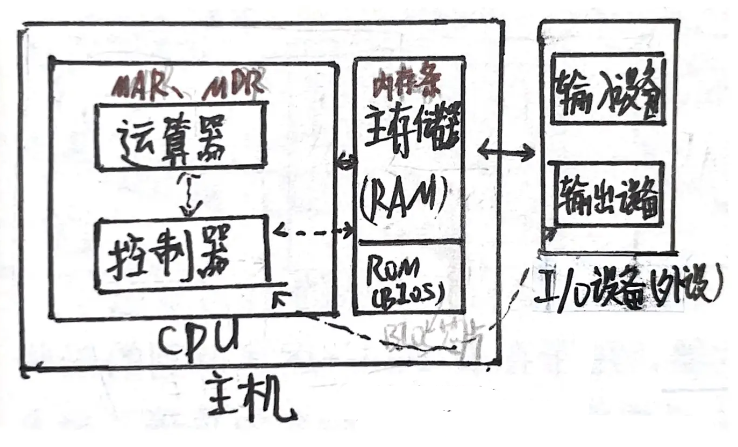 MAR、MDR
运算器
控制器
CPU
内存条
主存储器
(RAM)
ROM
(BIOS)
BIOS芯片
主机
输入设备
输出设备
I/O设备(外设)